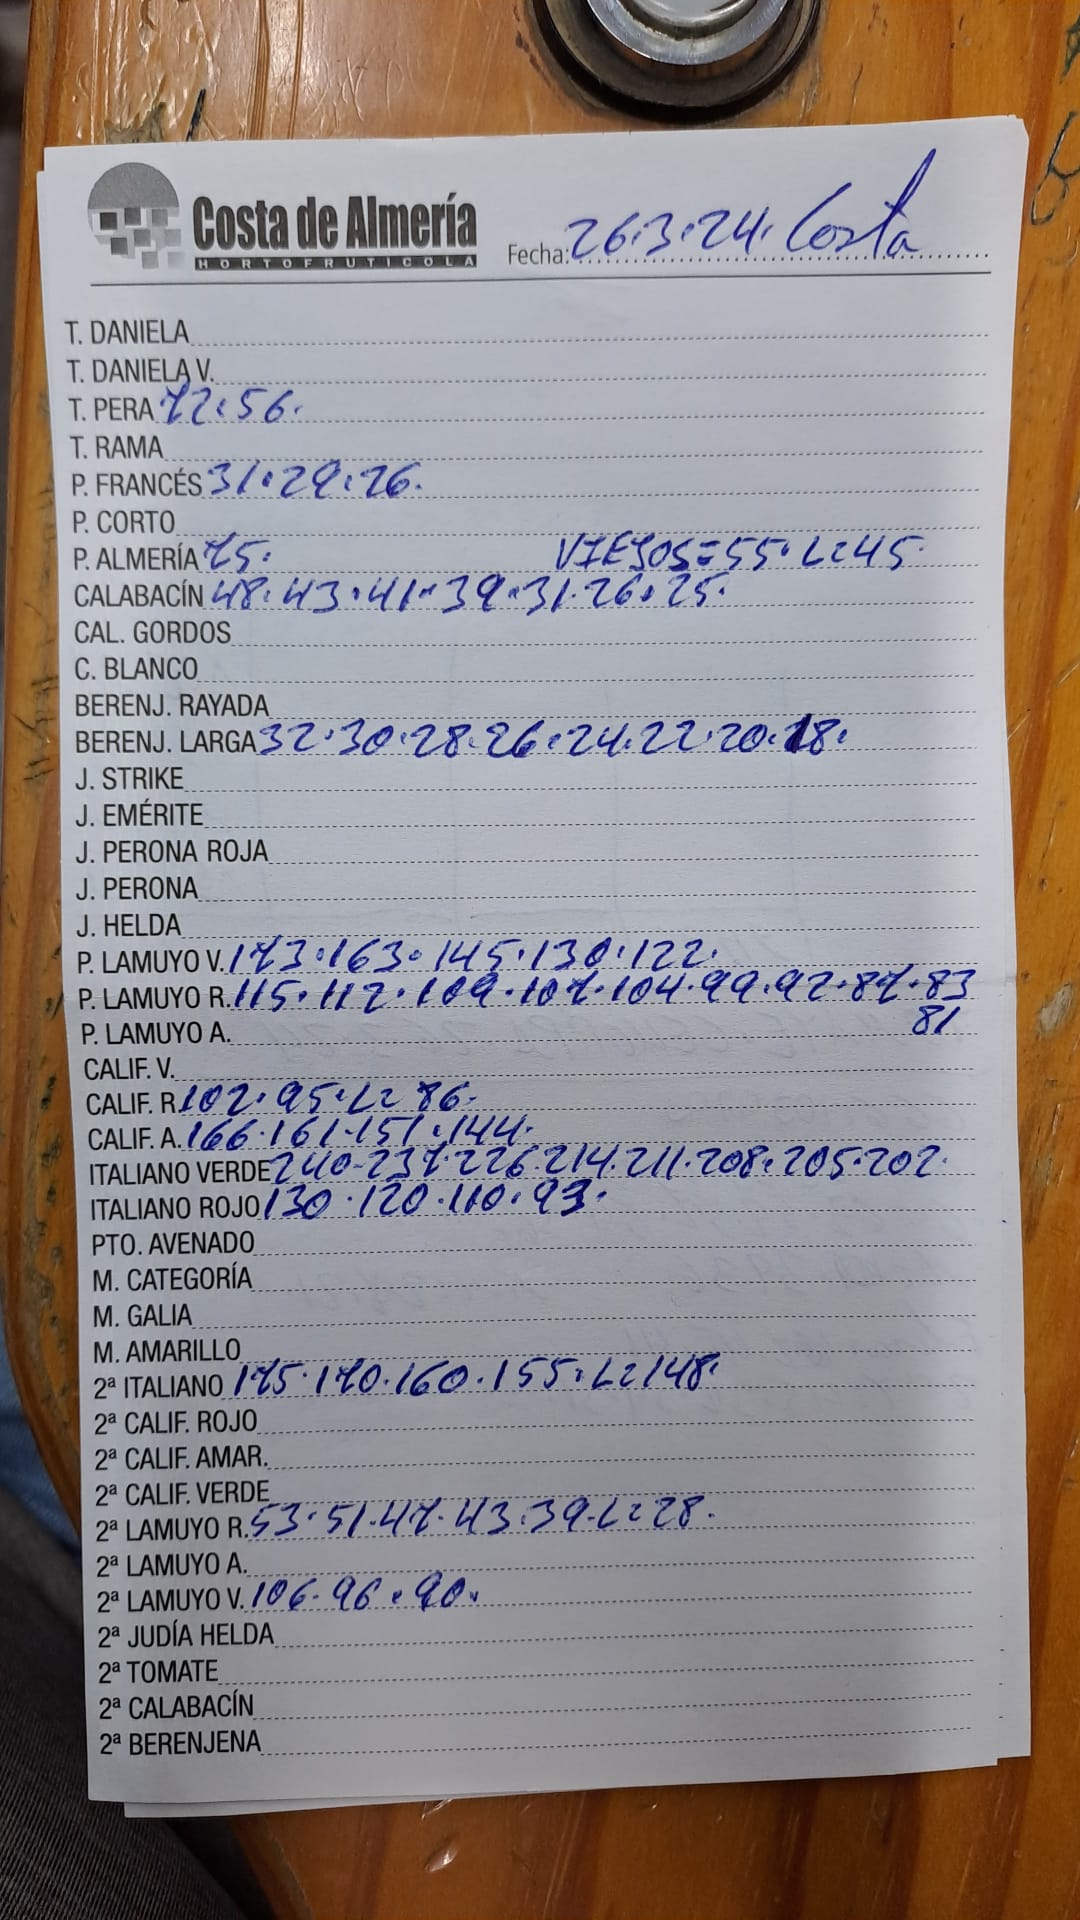 Costa de Almería
HORTOFRUTICOLA
Fecha: 26.3.24. Costa
T. DANIELA
T. DANIELA V.
T. PERA 72.56.
T. RAMA
P. FRANCÉS 31.29.26.
P. CORTO
P. ALMERÍA 75. VIEJOS=55.L=45.
CALABACÍN 48.43.41.39.31.26.25.
CAL. GORDOS
C. BLANCO
BERENJ. RAYADA
BERENJ. LARGA 32.30.28.26.24.22.20.18.
J. STRIKE
J. EMÉRITE
J. PERONA ROJA
J. PERONA
J. HELDA
P. LAMUYO V. 173.163.145.130.122.
P. LAMUYO R. 115.112.109.107.104.99.92.87.83
81
P. LAMUYO A.
CALIF. V.
CALIF. R. 102.95.L=86.
CALIF. A. 166.161.151.144.
ITALIANO VERDE 240.237.226.214.211.208.205.202.
ITALIANO ROJO 130.120.110.93.
PTO. AVENADO
M. CATEGORÍA
M. GALIA
M. AMARILLO
2ª ITALIANO 175.170.160.155.L=148.
2ª CALIF. ROJO
2ª CALIF. AMAR.
2ª CALIF. VERDE
2ª LAMUYO R. 53.51.47.43.39.L=28.
2ª LAMUYO A.
2ª LAMUYO V. 106.96.90.
2ª JUDÍA HELDA
2ª TOMATE
2ª CALABACÍN
2ª BERENJENA